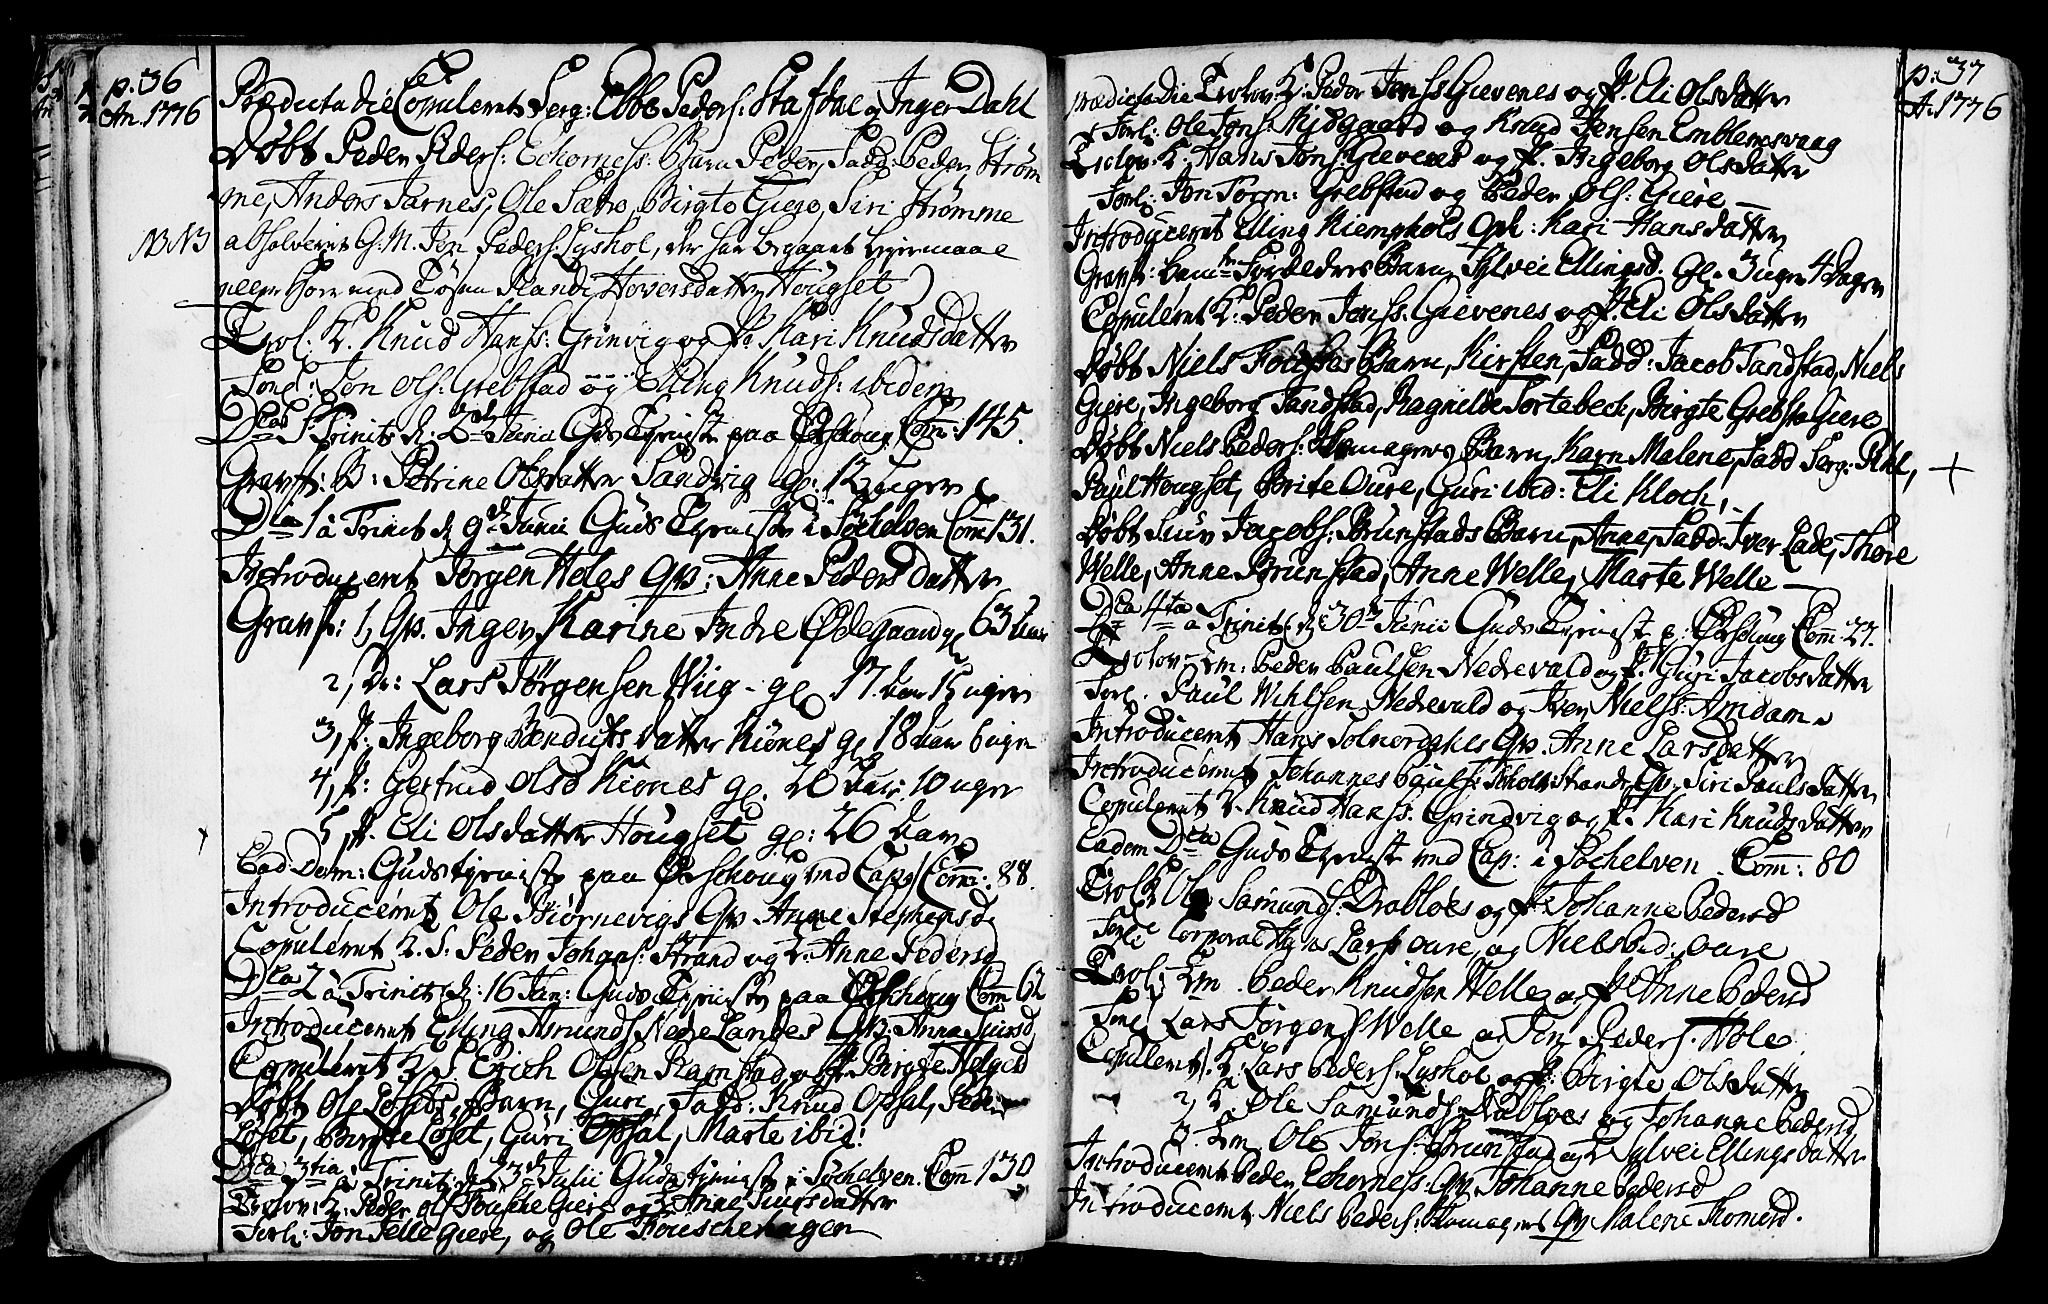 p. 36
An. 1776
Prædicta die Copulerets Serg: Ebbe Peders: Stafdal og Inger Dahl
Døbt Peder Peders: Echorness: Barn Peder, Fadd: Peder Strøm
me, Anders Jarnes, Ole Sætre, Birgte Giere, Siri Strømme
NB NB absolverit G. M. Jon Peders: Lyshol, der har begaaet leiermaal
med Tøsen Randi Hoversdatter Hougset
Trol: K. Knud Hanss: Grinvig og P. Kari Knudsdatter
Forl: Jon Ols: Grebstad og Elling Knuds: ibidem
Dca S: Trinit: d: 2d Junii Guds Tjeniste paa Ørschoug Com: 145.
Gravf: B: Petrine Olsdatter Sandvig gl: 12 uger
Dca 1 a Trinit d 9d Junii Guds Tjeniste i Søchelven Com 131.
Introduceret Jørgen Heles Qv: Anne Peders datter
Gravf: 1, Qv. Inger Karine Indre Ødegaard gl 63 Aar
2, Dr: Lars Jørgensen Wiig - gl 17 Aar 15 uger
3, P. Ingeborg Bendicts datter Kiønes gl 18 Aar 6 uger
4, P: Gertrud Olsd Kiønes gl. 20 Aar: 10 uger
5, P. Eli Olsdatter Hougset gl: 26 Aar
Ead: Dom: Gudstjeniste paa Ørschoug ved Cap: Com: 88.
Introduceret Ole Biørnevigs Qv Anne Stephensd
Copuleret K. S: Peder Johans: Strand og P: Anne Pedersd
Dca 2 a Trinit d: 16 Jun: Guds Tjeniste paa Ørschoug Com 62
Introduceret Elling Asmunds Nedre Landes Qv: Anna Siursd
Copuleret K S Erich Olsen Ramstad og P Birgte Helgesd
Døbt Ole Løsets Barn, Guri, Fadd: Knud Opsal, Peder
Løset, Birgte Løset, Guri Opsal, Marte ibid:
Dca 3tia a Trinit d 23d Julii Guds tjeniste i Søchelven. Com 130
Trolov: K: Peder Ols Fousche Giere og P Anne Siursdatter
Forl: Jon Pelle Giere, og Ole Fouschehagen
p: 37
A. 1776
Prædicta Die Trolov K: Peder Jonss Gievenes og P. Eli Olsdatter
Forl: Ole Jons: Kiøgaard og Knud Jensen Emblemsvaag
Trolov. K. Hans Jons: Gievenes og P. Ingeborg Olsdatter
Forl: Jon Torm: Grebstad og Peder Ols: Giere
Introduceret Elling Kiemphols Qv: Kari Hansdatter
Gravf: bem: Fordedres Barn, Sylvei Ellingsd. gl. 3 uger 4 Dager
Copuleret K: Peder Jonss. Gievenes og P. Eli Olsdatter
Døbt Niels Barn, Kirsten, Fadd: Jacob Tandstad, Niels
Giere, Ingeborg Tandstad, Ragnilde Sortebech, Birgte Grebsta Giere
Døbt Niels Peders: Barn, Karn Malene, Fadd Serg: Pihl,
Paul Hougset, Brite Oure, Guri ibid: Eli Kloch,
Døbt Siuv Jacobs: Brunstads Barn, Anne, Fadd: Iver Lade, Thore
Welle, Anne Brunstad, Anne Welle, Marte Welle
Dca 4ta a Trinit: d 30d Junii Guds Tjeniste p: Ørschoug Com: 27.
Trolov: Em: Peder Paulsen Nedrevald og P. Guri Jacobsdatter
Forl. Paul Wihlsen Nedrevald og Iver Nielss: Amdam
Introduceret Hans Solnørdahls Qv. Anne Larsdatter
Introduceret Johannes Pauls: Strande Qv. Siri Pauls datter
Copuleret K. Knud Hanss. Grindvig og P. Kari Knudsdatter
Eadem Dca Guds Tjeniste ved Cap: i Søchelven. Com: 80
Trol K Ole Samunds: Drabløes og P Johanne Pedersd
Forl: Corporal Hans Larss Oure, og Niels Ped: Oure
Trol: Em. Peder Knudsen Welle og P Anne Pedersd
Forl: Lars Jørgens Welle og Jon Peders. Hole
Copuleret 1. K. Lars Peders: Lyshol og P: Birgte Olsdatter
2, K. Ole Samunds: Drabløes og Johanne Pedersd
3. Em Ole Jons: Brunstad og P Sylvei Ellingsdatter
Introduceret Peder Echorness: Qv Johanne Pedersd
Introduceret Niels Peders: Qv Malene Thomesd.